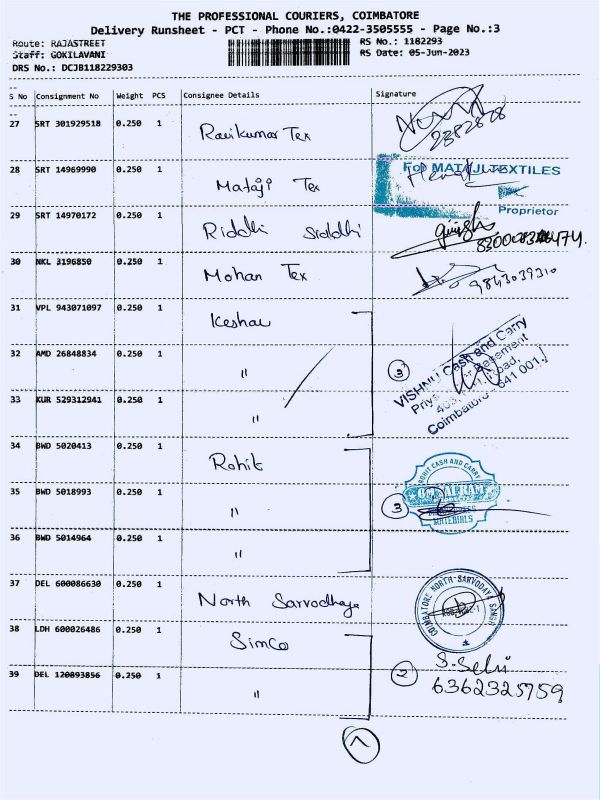 THE PROFESSIONAL COURIERS, COIMBATORE
Delivery Runsheet - PCT - Phone No.:0422-3505555 - Page No.:3
Route: RAJASTREET RS No.: 1182293
Staff: GOKILAVANI RS Date: 05-Jun-2023
DRS No.: DCJB118229303
S No Consignment No Weight PCS Consignee Details Signature
27 SRT 301929518 0.250 1 Ravikumar Tex
2382828
28 SRT 14969990 0.250 1 Mataji Tex
For MATAJI TEXTILES
Proprietor
29 SRT 14970172 0.250 1 Riddhi Siddhi
30 NKL 3196850 0.250 1 Mohan Tex 9843039310
31 VPL 943071097 0.250 1 Keshav
32 AMD 26848834 0.250 1 " 3
VISHNU Cash and Carry
Basement
Road,
Coimbatore - 641 001.
33 KUR 529312941 0.250 1 "
34 BWD 5020413 0.250 1 Rohit
ROHIT CASH AND CARRY
35 BWD 5018993 0.250 1 " 3
MATERIALS
36 BWD 5014964 0.250 1 "
37 DEL 600086630 0.250 1 North Sarvodhaya
COIMBATORE NORTH SARVODAYA SANGH
38 LDH 600026486 0.250 1 Simco
S. Selvi
39 DEL 120893856 0.250 1 " 2 6362325759